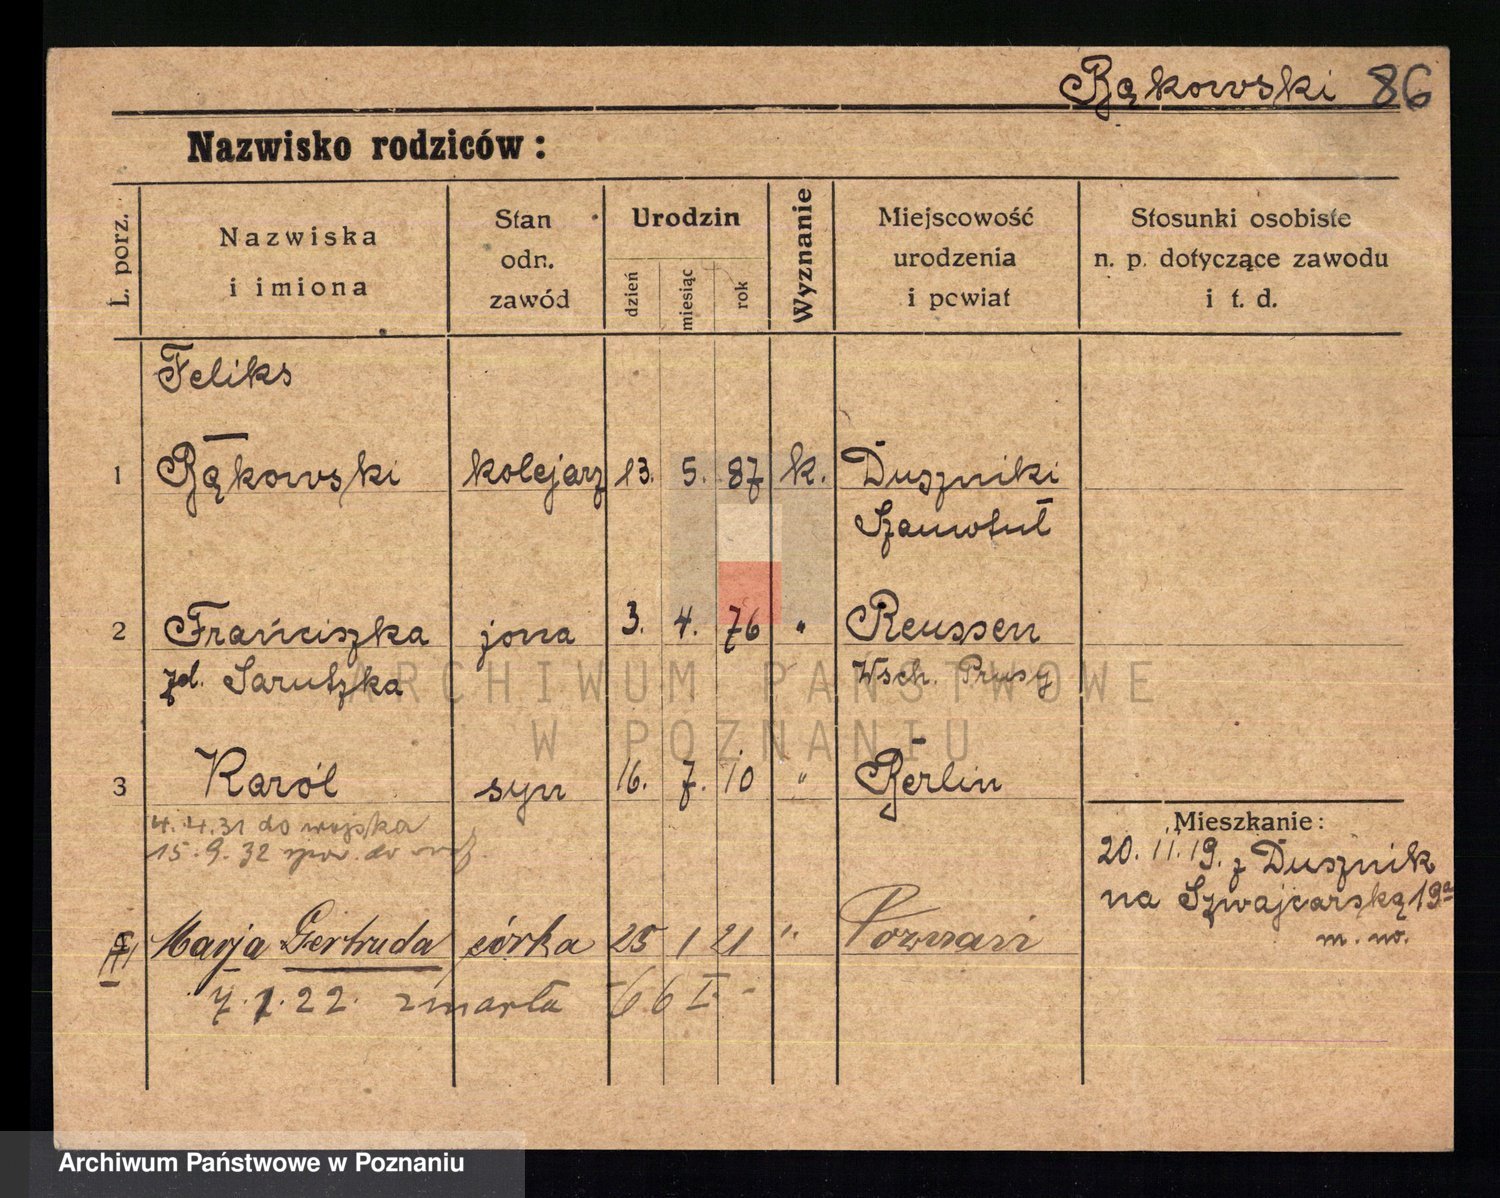 Bąkowski 86
Nazwisko rodziców:
L. porz.
Nazwiska
i imiona
Stan
odn.
zawód
Urodzin
dzień
miesiąc
rok
Wyznanie
Miejscowość
urodzenia
i powiat
Stosunki osobiste
n. p. dotyczące zawodu
i t. d.
Feliks
1 Bąkowski kolejarz 13. 5. 87 k. Duszniki
Szamotuł
2 Franciszka żona 3. 4. 76 " Reussen
zd. Sarutzka Wsch. Prusy
3 Karól syn 16. 7. 10 " Berlin
4.4.31 do wojska
15.9.32 do
Mieszkanie:
20.11.19. z Dusznik
na Szwajcarską 19a
m. no.
Marja Gertruda córka 25 1 21 " Poznań
7.1.22. zmarła 6 I
ARCHIWUM PAŃSTWOWE
W POZNANIU
Archiwum Państwowe w Poznaniu